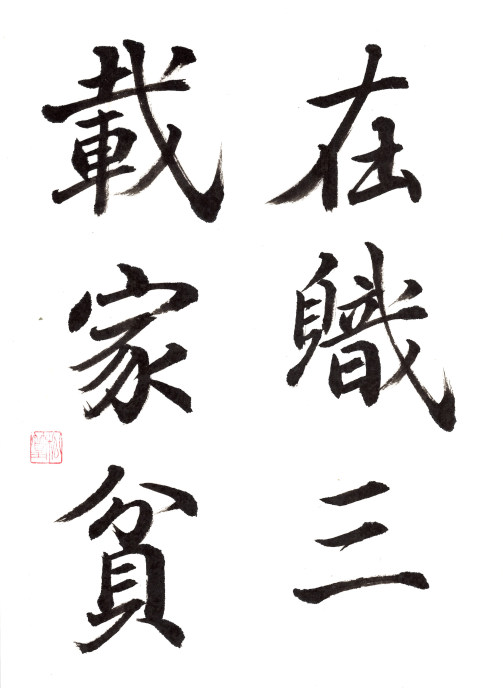 在軄三
載家貧